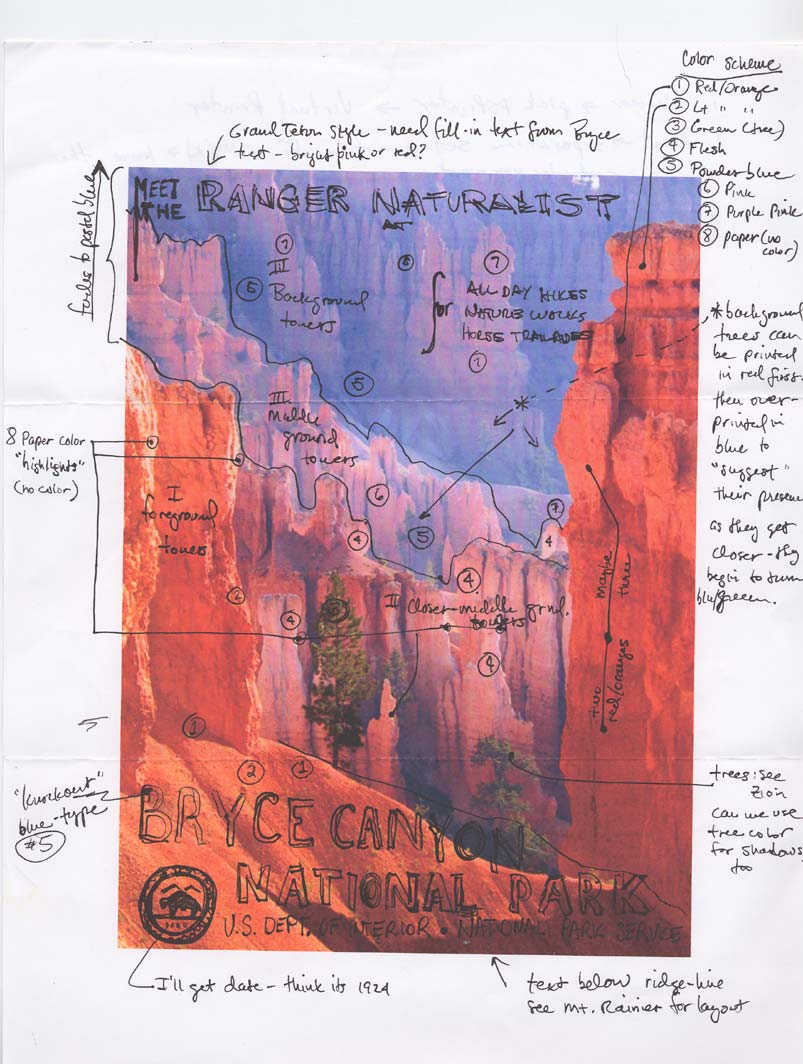 Color scheme
① Red/Orange
② Lt " "
③ Green (tree)
④ Flesh
⑤ Powder blue
⑥ Pink
⑦ Purple Pink
⑧ paper (no
color)
Grand Teton style - need fill-in text from Bryce
text - bright pink or red?
fades to pastel blue
MEET
THE RANGER NATURALIST
AT
①
III
⑤ Background
towers
⑧
⑦
for
ALL DAY HIKES
NATURE WALKS
HORSE TRAIL RIDES
⑦
⑤
* background
trees can
be printed
in red first.
then over-
printed in
blue to
"suggest"
their presence
as they get
closer - they
begin to turn
blue/green.
*
III.
Middle
ground
towers
8 Paper color
"highlights"
(no color)
I
foreground
towers
⑥
④
⑤
⑦
4
④
②
④
③
II Closer-middle grnd.
towers
④
maybe
three
two
red/oranges
5
①
②
①
"knockout"
blue-type
#5
trees: see
Zion
can we use
tree color
for shadows
too
BRYCE CANYON
NATIONAL PARK
U.S. DEPT. OF INTERIOR • NATIONAL PARK SERVICE
I'll get date - think its 1924
text below ridge-line
see Mt. Rainier for layout